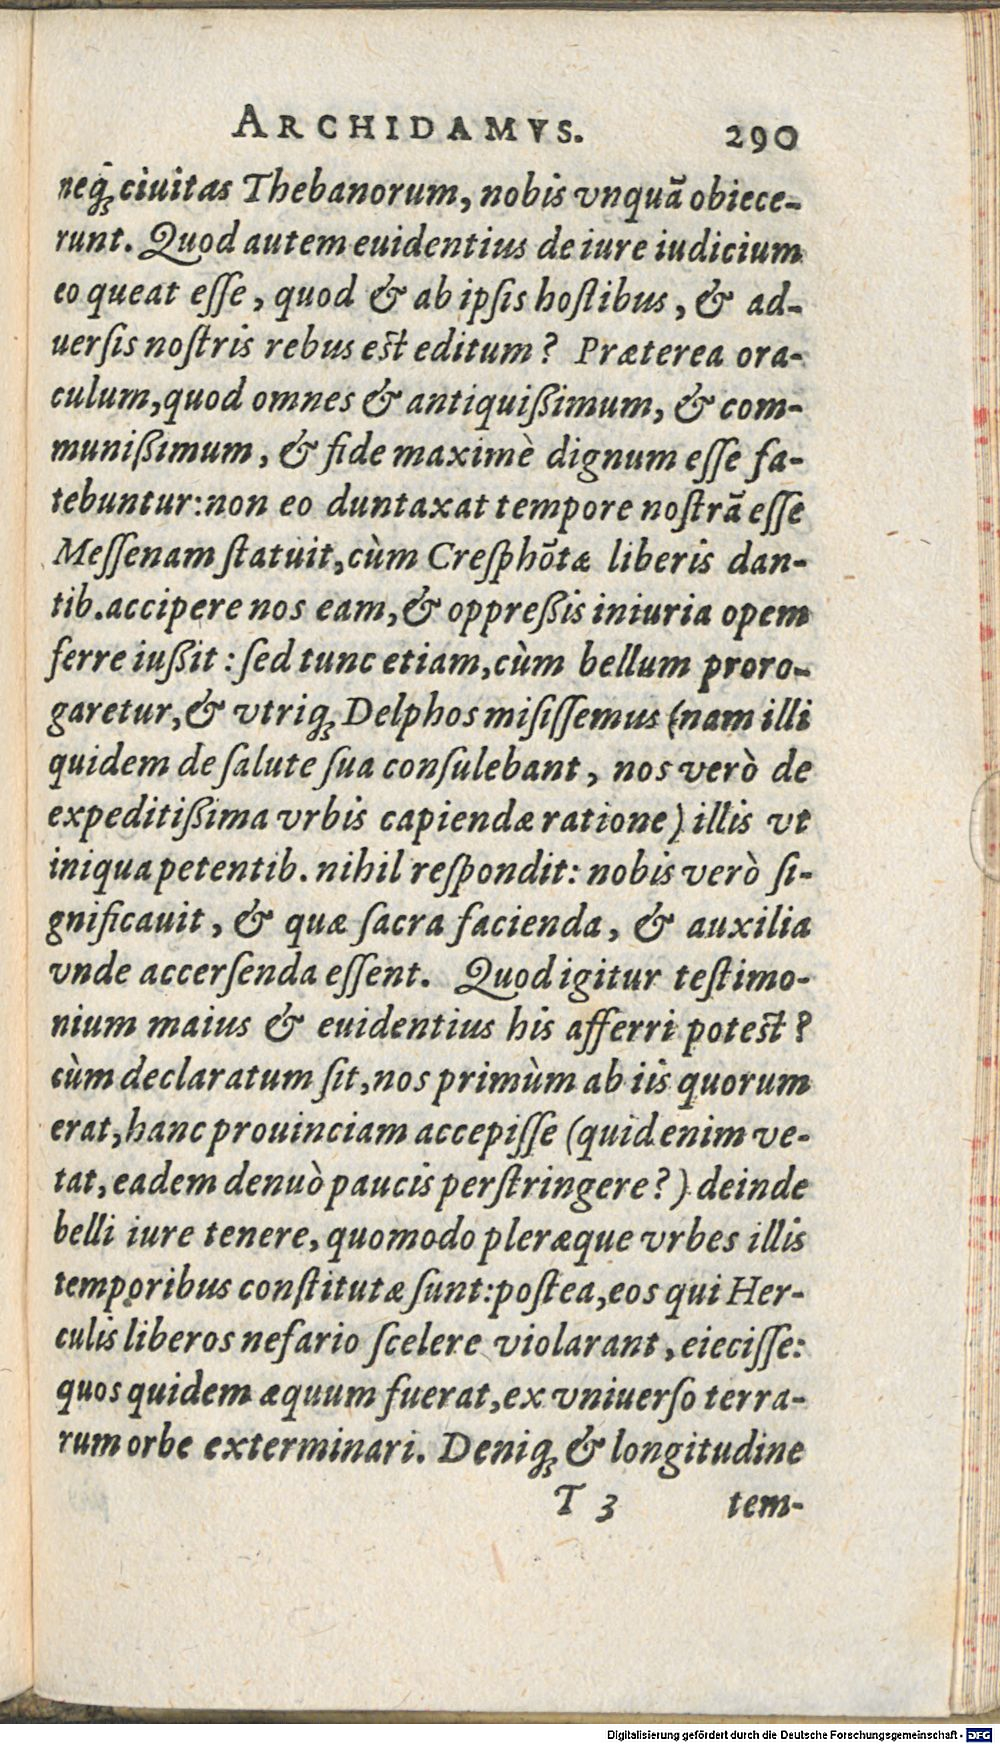 ARCHIDAMVS. 290
neq́ꝫ ciuitas Thebanorum, nobis vnquã obiece-
runt. Quod autem euidentius de iure iudicium
eo queat eſſe, quod & ab ipſis hoſtibus, & ad-
uerſis noſtris rebus est editum? Præterea ora-
culum, quod omnes & antiquißimum, & com-
munißimum, & fide maximè dignum eſſe fa-
tebuntur: non eo duntaxat tempore noſtrã eſſe
Meſſenam ſtatuit, cùm Creſphõtæ liberis dan-
tib. accipere nos eam, & oppreßis iniuria opem
ferre iußit: ſed tunc etiam, cùm bellum proro-
garetur, & vtriqꝫ Delphos miſiſſemus (nam illi
quidem de ſalute ſua conſulebant, nos verò de
expeditißima vrbis capiendæ ratione) illis vt
iniqua petentib. nihil reſpondit: nobis verò ſi-
gnificauit, & quæ ſacra facienda, & auxilia
vnde accerſenda eſſent. Quod igitur teſtimo-
nium maius & euidentius his afferri potest?
cùm declaratum ſit, nos primùm ab iis quorum
erat, hanc prouinciam accepiſſe (quid enim ve-
tat, eadem denuò paucis perſtringere?) deinde
belli iure tenere, quomodo pleræque vrbes illis
temporibus conſtitutæ ſunt: poſtea, eos qui Her-
culis liberos nefario ſcelere violarant, eieciſſe:
quos quidem æquum fuerat, ex vniuerſo terra-
rum orbe exterminari. Deniqꝫ & longitudine
T 3 tem-
Digitalisierung gefördert durch die Deutsche Forschungsgemeinschaft - DFG